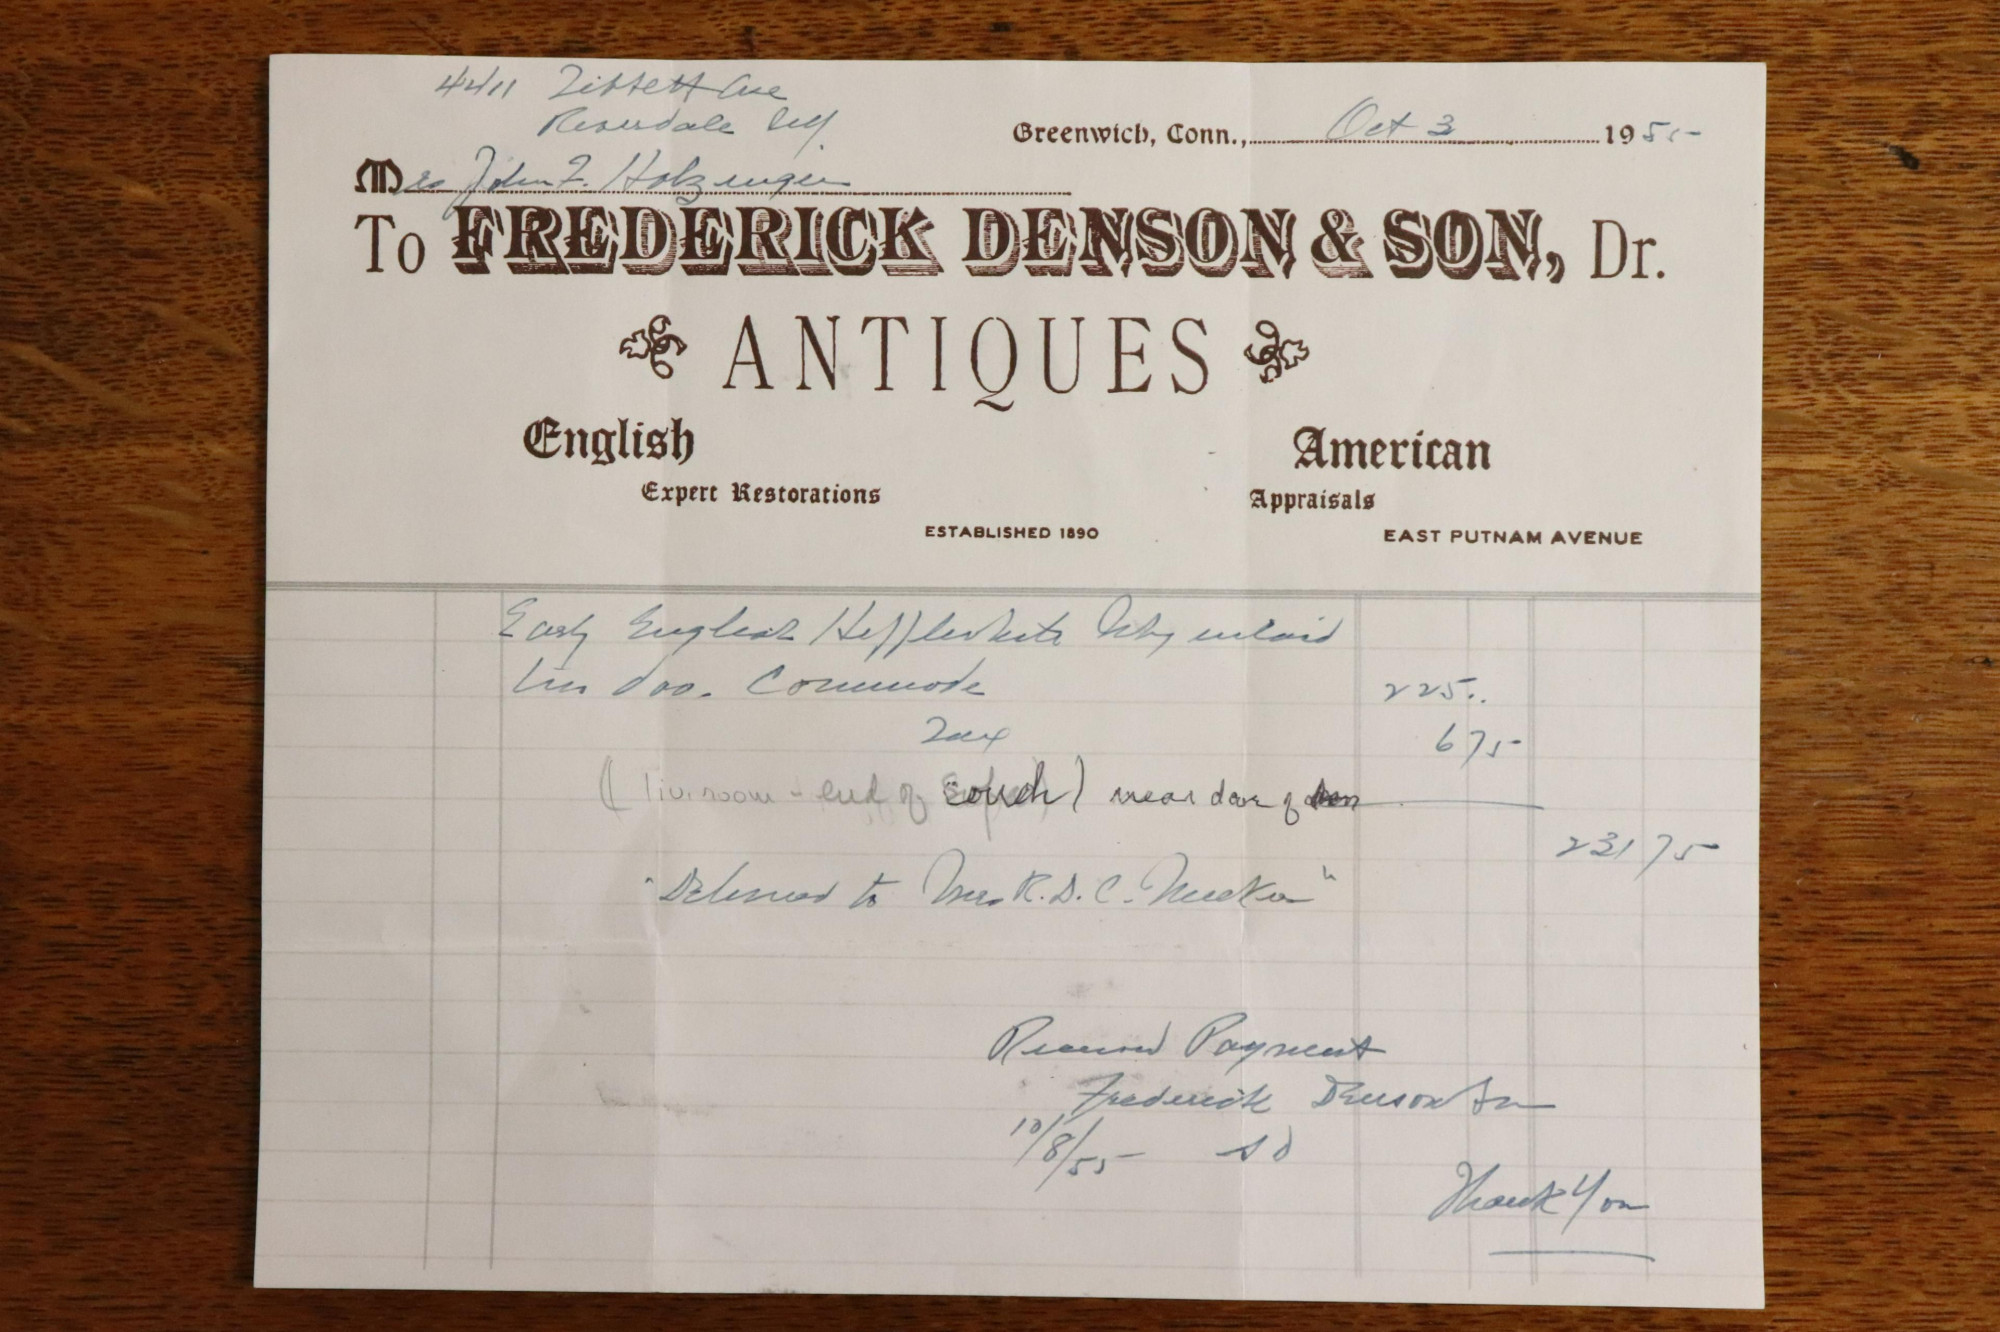 4411 Tibbett Ave
Riverdale NY.
Greenwich, Conn., Oct 3 1955
Mrs John F. Holzinger
To FREDERICK DENSON & SON, Dr.
ANTIQUES
English American
Expert Restorations Appraisals
ESTABLISHED 1890 EAST PUTNAM AVENUE
Early English Hepplewhite Mhg inlaid
Commode 225..
Tax 6 75
(liv. room - end of couch) near door of den
231 75
"Delivered to Mrs R. D. C. Meeker"
Received Payment
Frederick Denson & Son
10/8/55 SD
Thank You